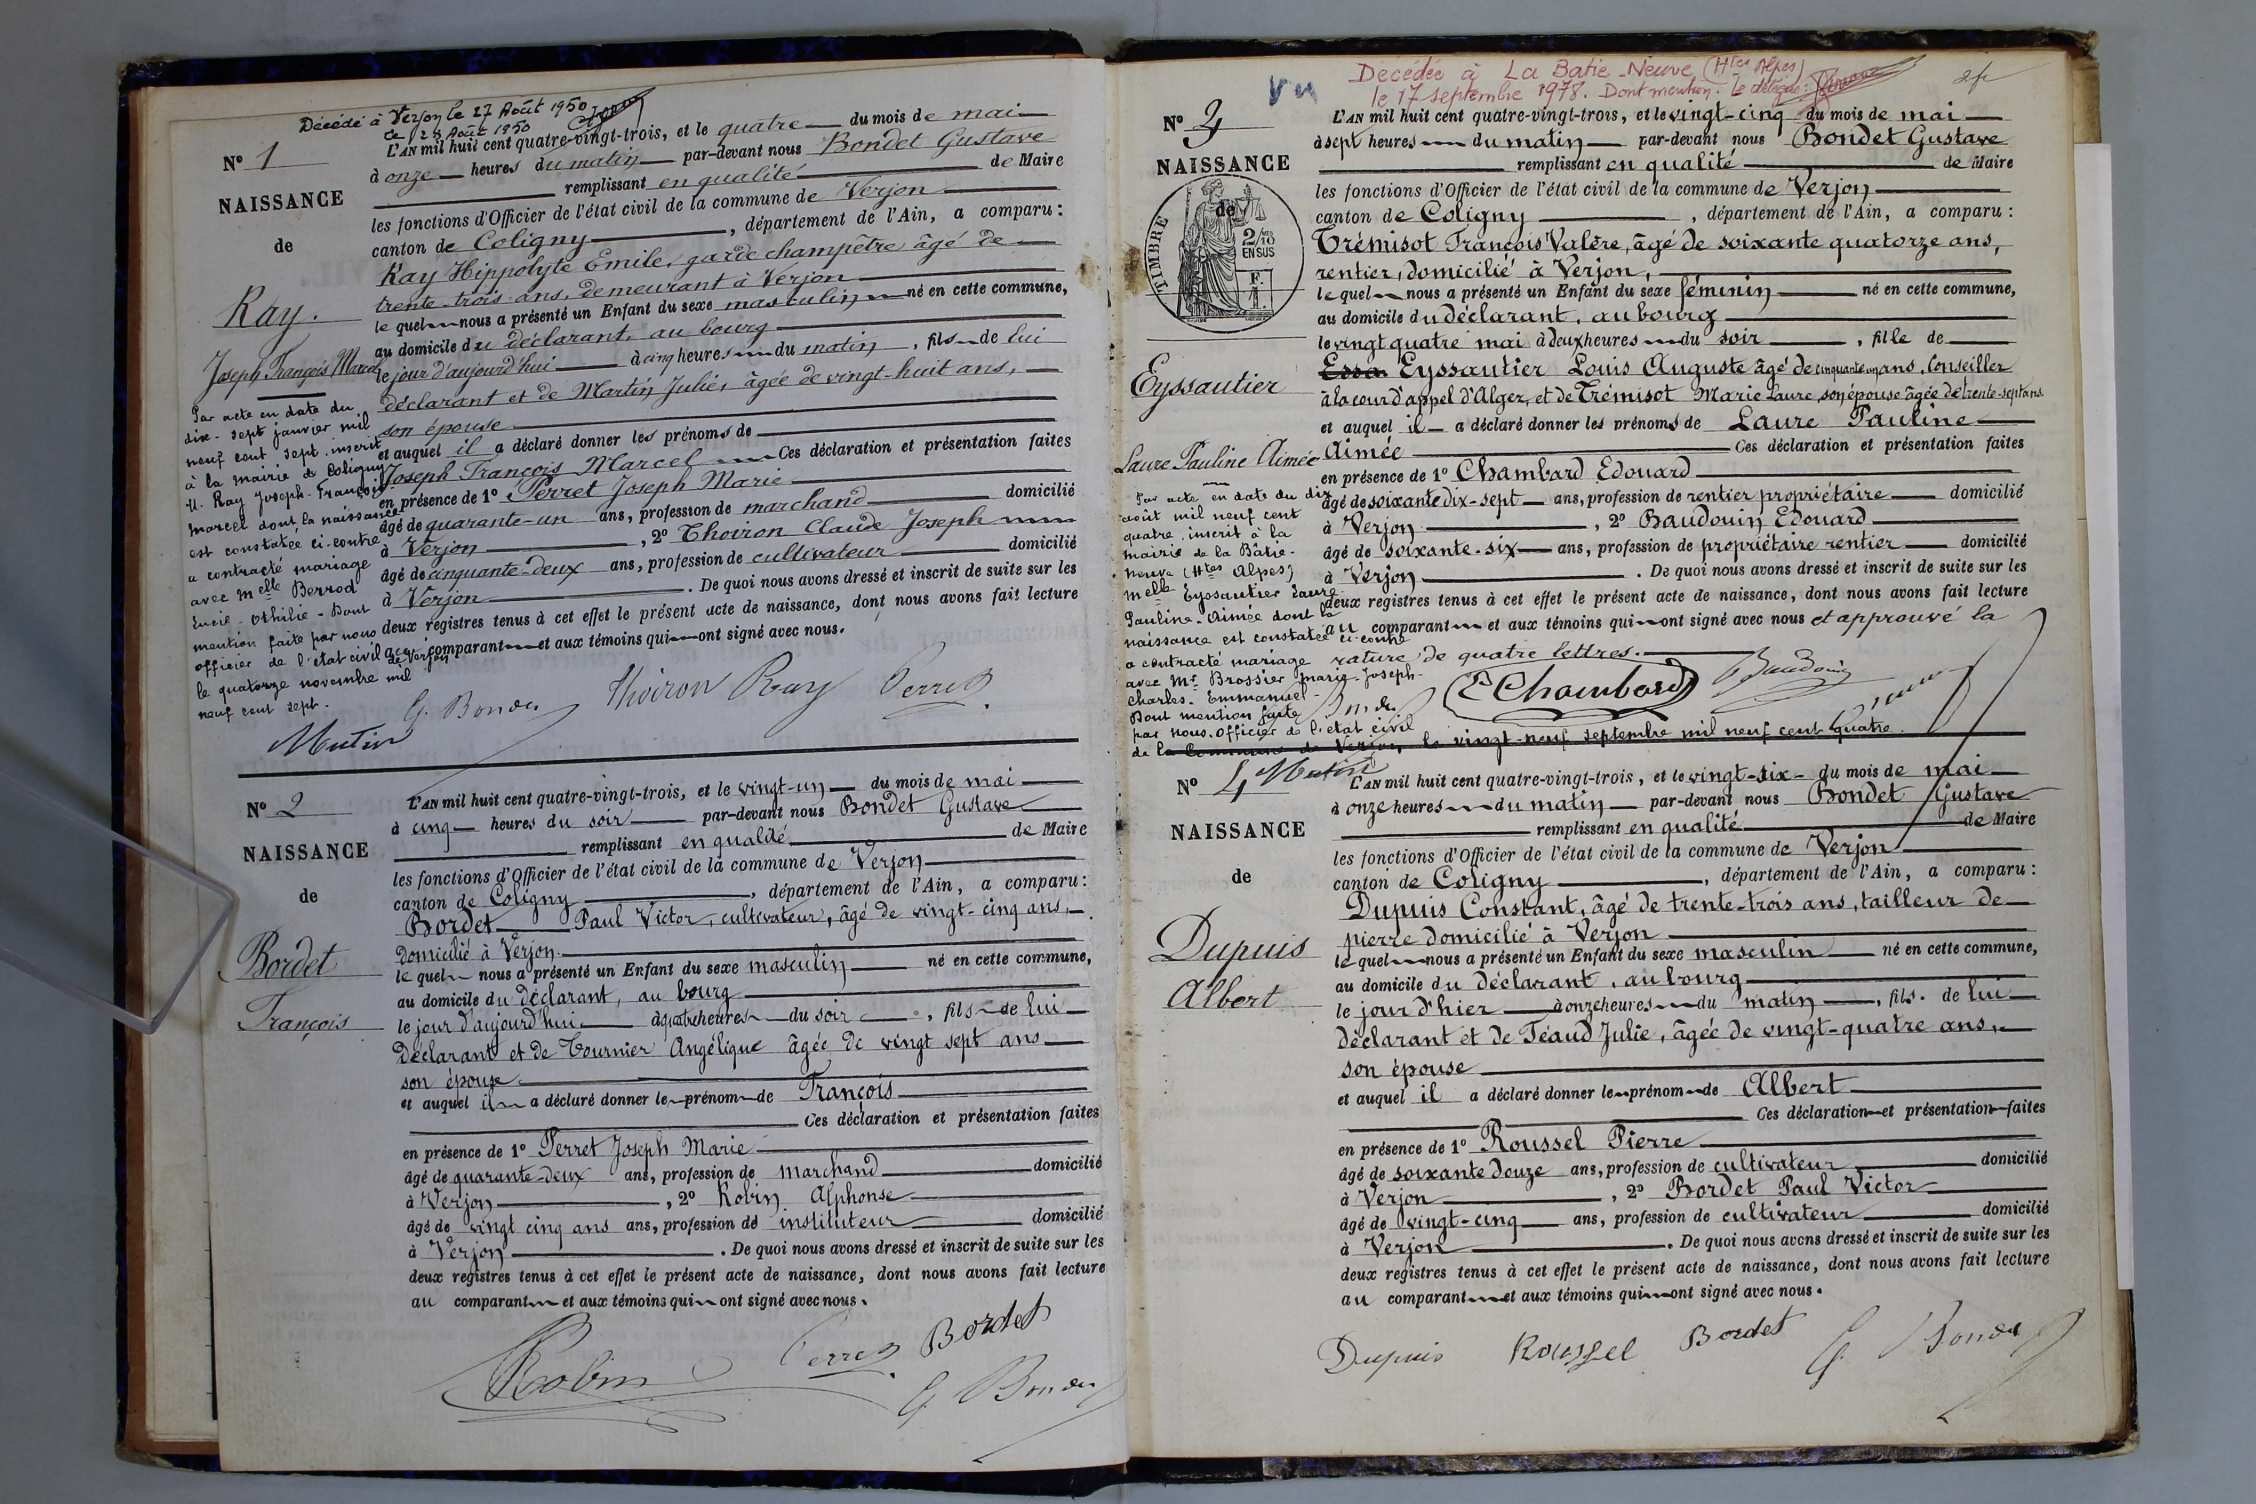 Décédé à Verjon le 27 Août 1950
le 28 Août 1950
N° 1
NAISSANCE
de
Ray.
Joseph François Marcel
Par acte en date du
dix-sept janvier mil
neuf cent sept, inscrit
à la mairie de Coligny
M. Ray Joseph-François
Marcel dont la naissance
est constatée ci-contre
a contracté mariage
avec Melle Berrod
Lucie-Othilie-Dont
mention faite par nous
officier de l'état civil de Verjon
le quatorze novembre mil
neuf cent sept.
Mutin
L'AN mil huit cent quatre-vingt-trois, et le quatre du mois de mai
à onze heures du matin par-devant nous Bondet Gustave
remplissant en qualité de Maire
les fonctions d'Officier de l'état civil de la commune de Verjon
canton de Coligny, département de l'Ain, a comparu :
Ray Hippolyte Emile, garde champêtre âgé de
trente-trois ans, demeurant à Verjon
le quel nous a présenté un Enfant du sexe masculin né en cette commune,
au domicile du déclarant, au bourg
le jour d'aujourd'hui à cinq heures du matin, fils de lui
déclarant et de Martin Julie, âgée de vingt-huit ans,
son épouse
et auquel il a déclaré donner les prénoms de
Joseph François Marcel Ces déclaration et présentation faites
en présence de 1° Perret Joseph Marie
âgé de quarante-un ans, profession de marchand domicilié
à Verjon, 2° Thoiron Claude Joseph
âgé de cinquante-deux ans, profession de cultivateur domicilié
à Verjon. De quoi nous avons dressé et inscrit de suite sur les
deux registres tenus à cet effet le présent acte de naissance, dont nous avons fait lecture
au comparant et aux témoins qui ont signé avec nous.
G. Bondet Thoiron Ray Perret
N° 2
NAISSANCE
de
Bordet
François
L'AN mil huit cent quatre-vingt-trois, et le vingt-un du mois de mai
à cinq heures du soir par-devant nous Bondet Gustave
remplissant en qualité de Maire
les fonctions d'Officier de l'état civil de la commune de Verjon
canton de Coligny, département de l'Ain, a comparu :
Bordet Paul Victor, cultivateur, âgé de vingt-cinq ans,
domicilié à Verjon
le quel nous a présenté un Enfant du sexe masculin né en cette commune,
au domicile du déclarant, au bourg
le jour d'aujourd'hui à quatre heures du soir, fils de lui
déclarant et de Tournier Angélique âgée de vingt sept ans
son épouse
et auquel il a déclaré donner le prénom de François
Ces déclaration et présentation faites
en présence de 1° Perret Joseph Marie
âgé de quarante-deux ans, profession de marchand domicilié
à Verjon, 2° Robin Alphonse
âgé de vingt cinq ans ans, profession de instituteur domicilié
à Verjon. De quoi nous avons dressé et inscrit de suite sur les
deux registres tenus à cet effet le présent acte de naissance, dont nous avons fait lecture
au comparant et aux témoins qui ont signé avec nous.
Robin Perret Bordet
G. Bondet
Vu
Decédée à La Batie-Neuve (Htes Alpes)
le 17 septembre 1978. Dont mention. Le délégué :
N° 3
NAISSANCE
de
TIMBRE
2/10
EN SUS
F.
Eyssautier
Laure Pauline Aimée
Par acte en date du dix
août mil neuf cent
quatre, inscrit à la
mairie de la Bâtie-
Neuve (Htes Alpes)
Melle Eyssautier Laure
Pauline-Aimée dont la
naissance est constatée ci-contre
a contracté mariage
avec Mr Brossier Marie-Joseph-
Charles-Emmanuel-
Dont mention faite
par nous, officier de l'état civil
de la Commune de Verjon, le vingt-neuf septembre mil neuf cent quatre.
Mutin
L'AN mil huit cent quatre-vingt-trois, et le vingt-cinq du mois de mai
à sept heures du matin par-devant nous Bondet Gustave
remplissant en qualité de Maire
les fonctions d'Officier de l'état civil de la commune de Verjon
canton de Coligny, département de l'Ain, a comparu :
Trémisot François Valère, âgé de soixante quatorze ans,
rentier, domicilié à Verjon,
le quel nous a présenté un Enfant du sexe féminin né en cette commune,
au domicile du déclarant, au bourg
le vingt quatre mai à deux heures du soir, fille de
Eyssautier Louis Auguste âgé de cinquante un ans, Conseiller
à la cour d'appel d'Alger, et de Trémisot Marie Laure, son épouse âgée de trente-sept ans
et auquel il a déclaré donner les prénoms de Laure Pauline
Aimée Ces déclaration et présentation faites
en présence de 1° Chambard Edouard
âgé de soixante dix-sept ans, profession de rentier propriétaire domicilié
à Verjon, 2° Baudouin Edouard
âgé de soixante-six ans, profession de propriétaire rentier domicilié
à Verjon. De quoi nous avons dressé et inscrit de suite sur les
deux registres tenus à cet effet le présent acte de naissance, dont nous avons fait lecture
au comparant et aux témoins qui ont signé avec nous et approuvé la
rature de quatre lettres.
E Chambard Baudouin
N° 4
NAISSANCE
de
Dupuis
Albert
L'AN mil huit cent quatre-vingt-trois, et le vingt-six du mois de mai
à onze heures du matin par-devant nous Bondet Gustave
remplissant en qualité de Maire
les fonctions d'Officier de l'état civil de la commune de Verjon
canton de Coligny, département de l'Ain, a comparu :
Dupuis Constant, âgé de trente-trois ans, tailleur de
pierre domicilié à Verjon
le quel nous a présenté un Enfant du sexe masculin né en cette commune,
au domicile du déclarant, au bourg
le jour d'hier à onze heures du matin, fils de lui
déclarant et de Téaud Julie, âgée de vingt-quatre ans,
son épouse
et auquel il a déclaré donner le prénom de Albert
Ces déclaration et présentation faites
en présence de 1° Roussel Pierre
âgé de soixante douze ans, profession de cultivateur domicilié
à Verjon, 2° Bordet Paul Victor
âgé de vingt-cinq ans, profession de cultivateur domicilié
à Verjon. De quoi nous avons dressé et inscrit de suite sur les
deux registres tenus à cet effet le présent acte de naissance, dont nous avons fait lecture
au comparant et aux témoins qui ont signé avec nous.
Dupuis Roussel Bordet G. Bondet